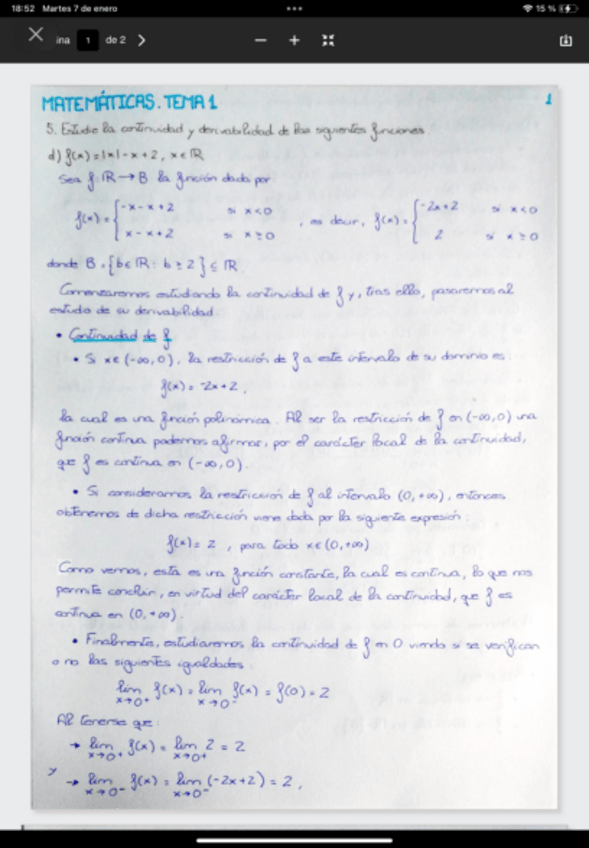 18:52 Martes 7 de enero
15 %
ina 1 de 2
MATEMÁTICAS. TEMA 1
1
5. Estudie la continuidad y derivabilidad de las siguientes funciones
d) f(x) = |x| - x + 2, x ∈ IR
Sea f: IR → B la función dada por
f(x) = { -x - x + 2 si x < 0 , es decir, f(x) = { -2x + 2 si x < 0
x - x + 2 si x ≥ 0 2 si x ≥ 0
donde B = {b ∈ IR : b ≥ 2} ⊆ IR
Comenzaremos estudiando la continuidad de f y, tras ello, pasaremos al
estudio de su derivabilidad
• Continuidad de f
• Si x ∈ (-∞, 0), la restricción de f a este intervalo de su dominio es:
f(x) = -2x + 2,
la cual es una función polinómica. Al ser la restricción de f en (-∞, 0) una
función continua podemos afirmar, por el carácter local de la continuidad,
que f es continua en (-∞, 0).
• Si consideramos la restricción de f al intervalo (0, +∞), entonces
obtenemos de dicha restricción viene dada por la siguiente expresión:
f(x) = 2, para todo x ∈ (0, +∞)
Como vemos, esta es una función constante, la cual es continua, lo que nos
permite concluir, en virtud del carácter local de la continuidad, que f es
continua en (0, +∞).
• Finalmente, estudiaremos la continuidad de f en 0 viendo si se verifican
o no las siguientes igualdades:
lim x→0+ f(x) = lim x→0- f(x) = f(0) = 2
Al tenerse que:
→ lim x→0+ f(x) = lim x→0+ 2 = 2
y → lim x→0- f(x) = lim x→0- (-2x + 2) = 2,